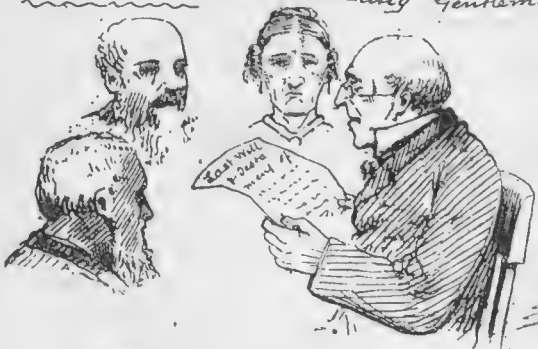 Gentlem
Last Will
& Testa
ment of